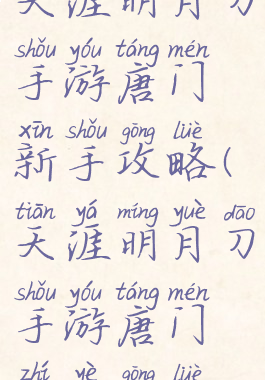 天涯明月刀
shǒu yóu táng mén
手游唐门
xīn shǒu gōng lüè
新手攻略(
tiān yá míng yuè dāo
天涯明月刀
shǒu yóu táng mén
手游唐门
zhí yè gōng lüè